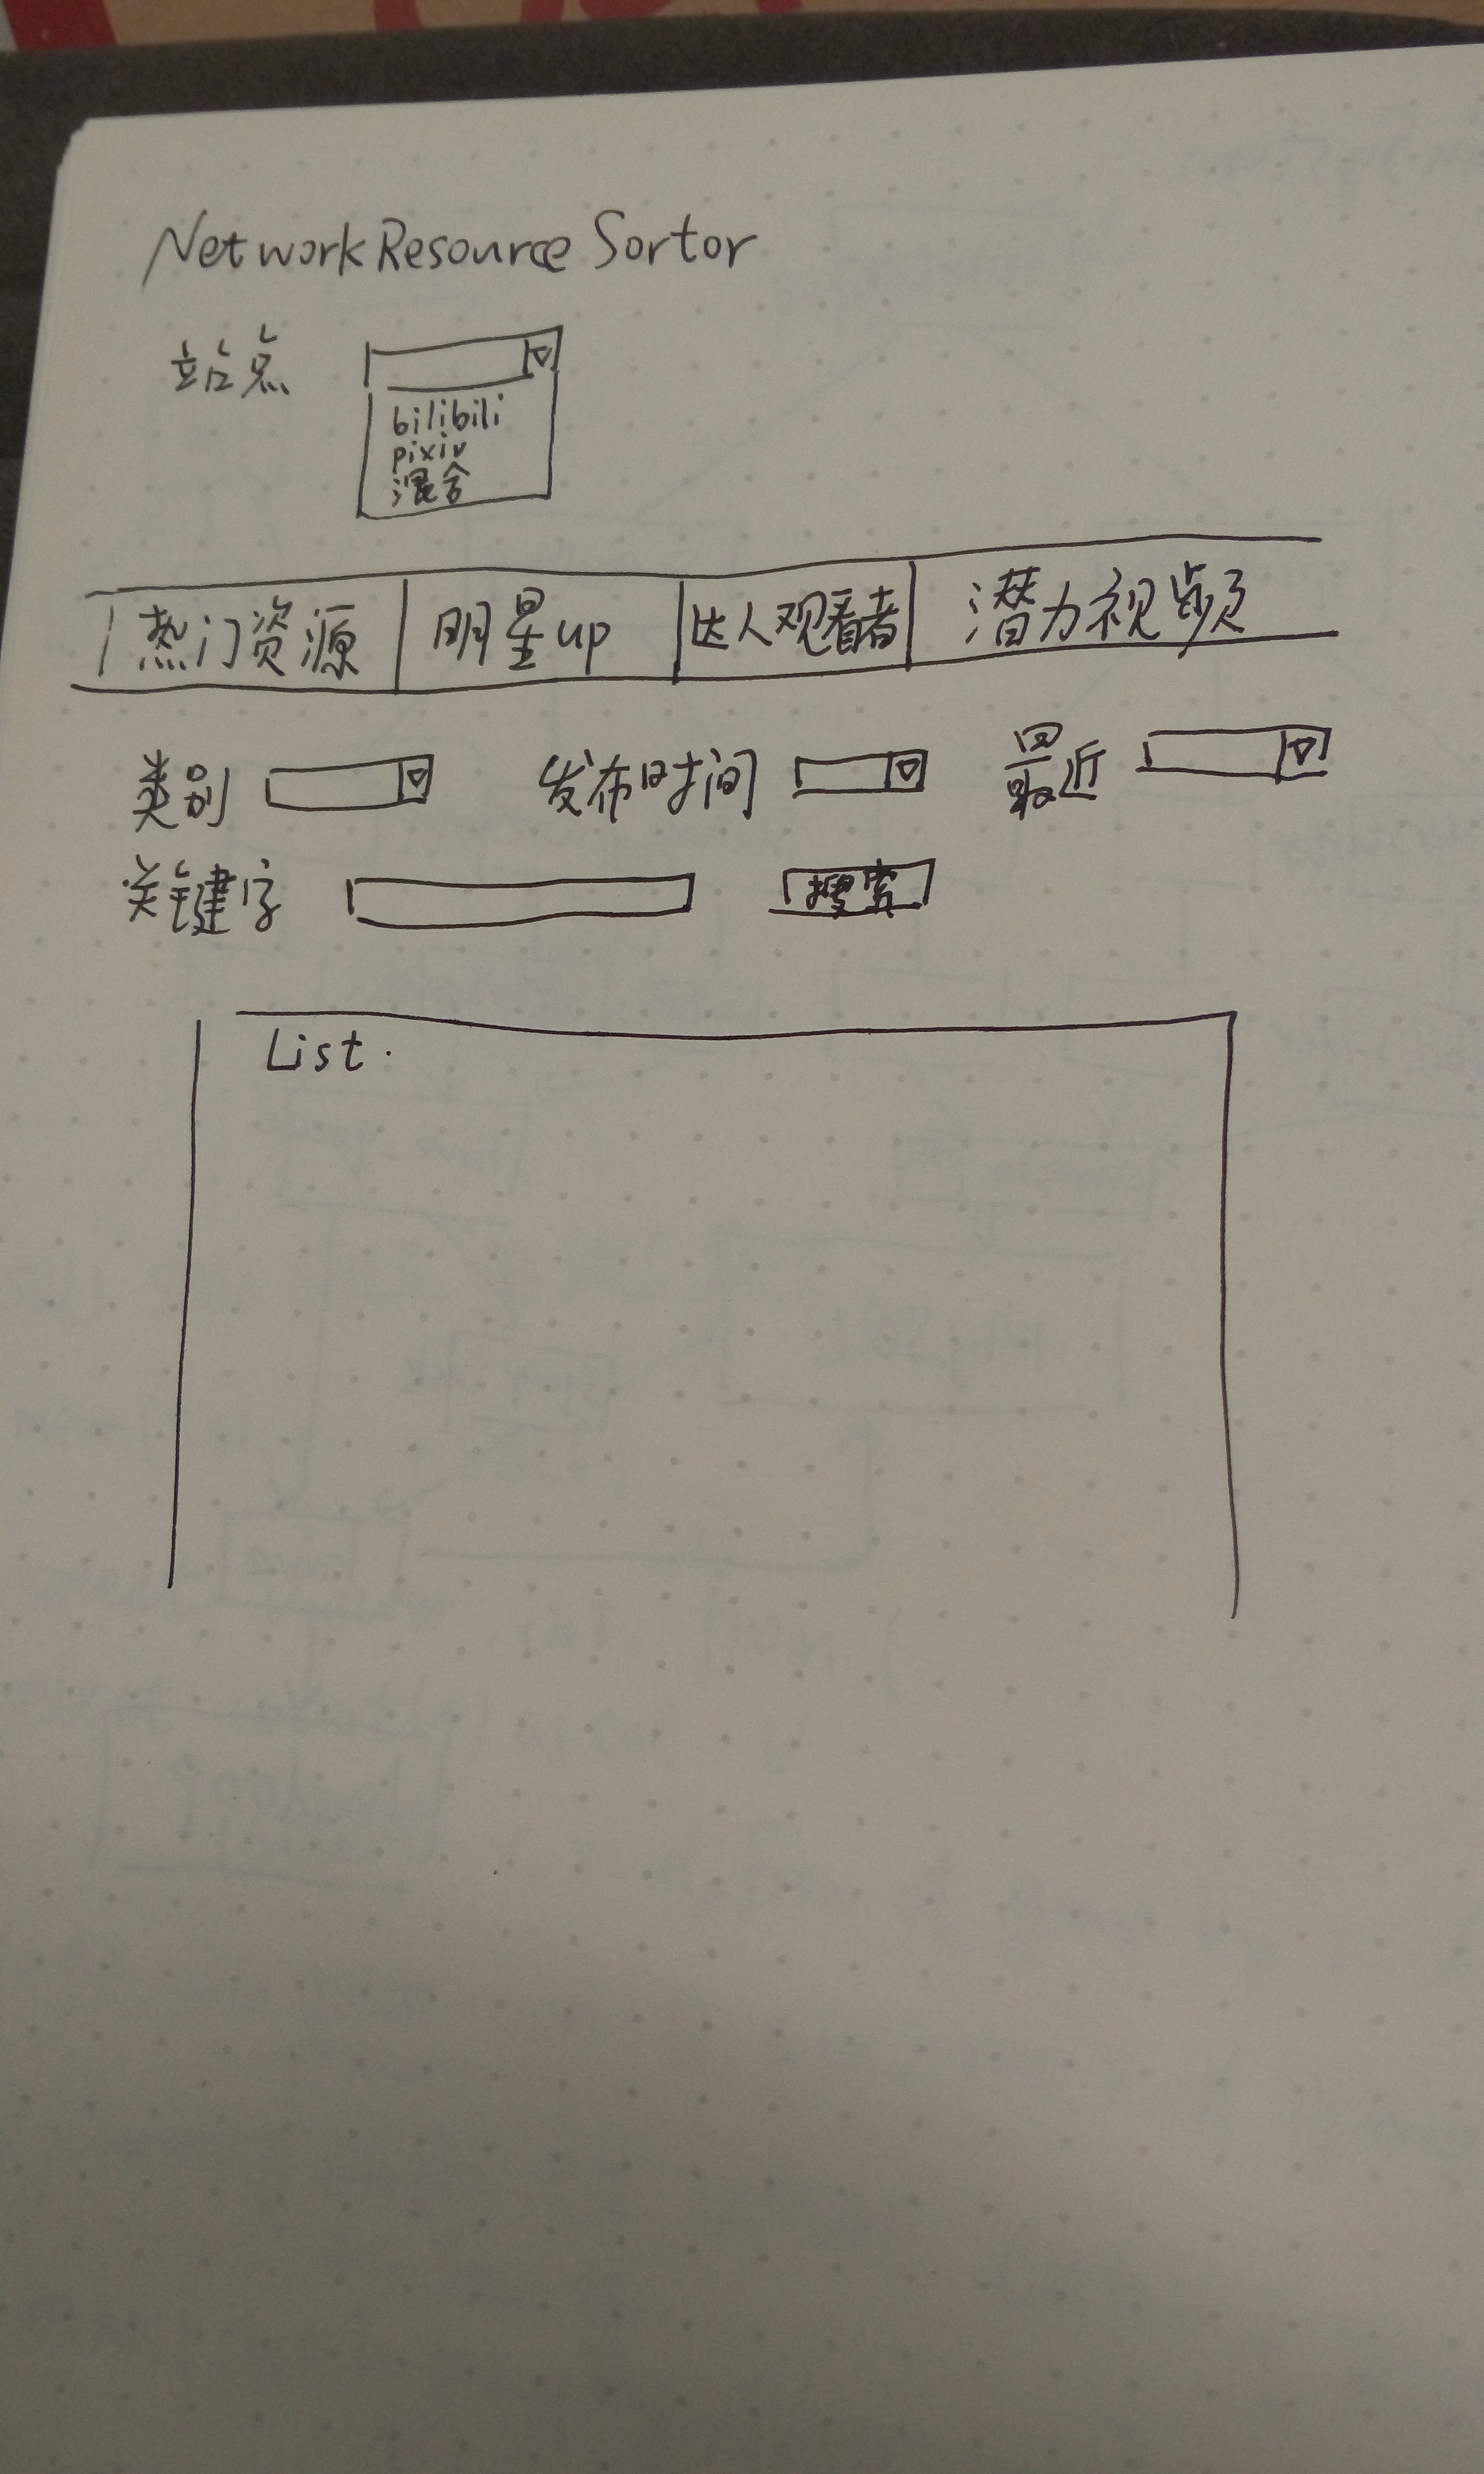 Network Resource Sortor
站点
bilibili
pixiv
混合
热门资源 明星up 达人观看者 潜力视频
类别 发布时间 最近
关键字 搜索
List.